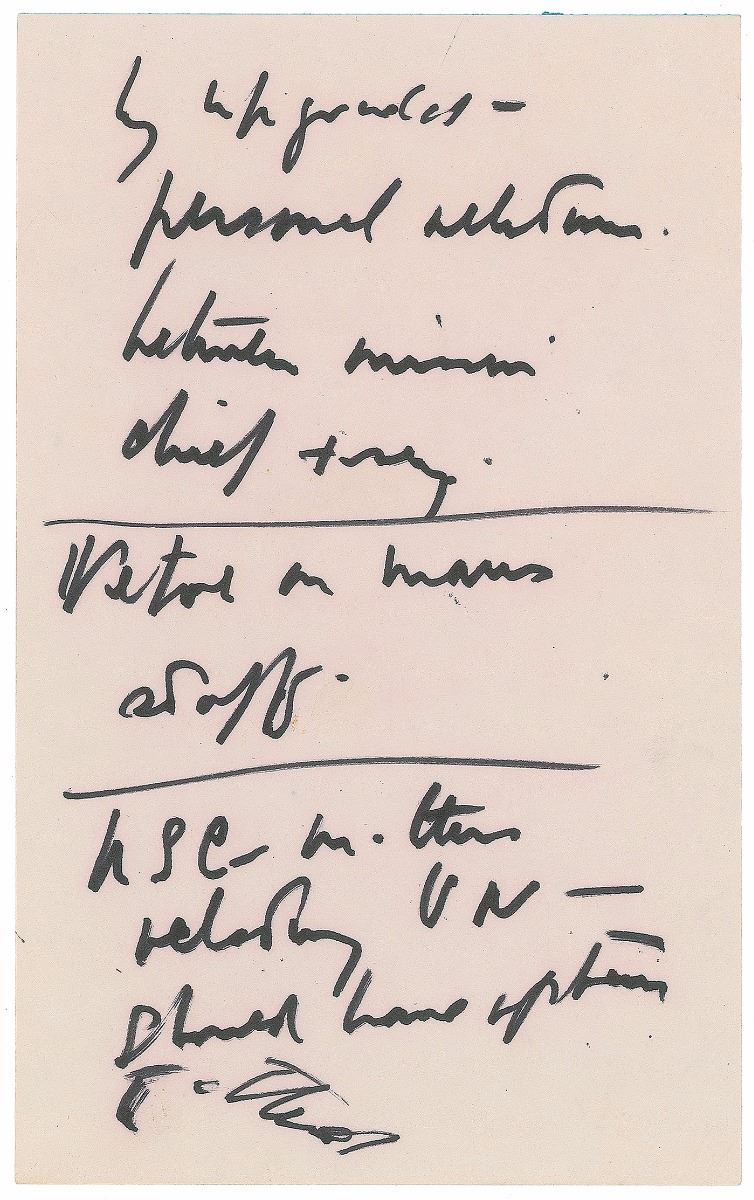 by upgraded –
personal relations.
between mission
chief + secy.
Veto on
staff.
NSC – matters
relating UN –
should have option